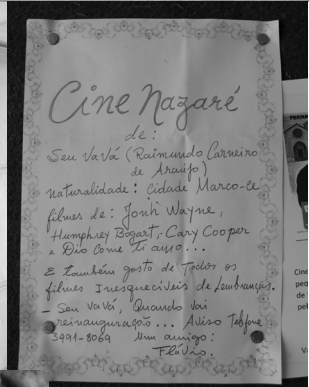 Cine Nazaré
de:
Seu Vavá (Raimundo Carneiro
de Araújo)
naturalidade: Cidade Marco-Ce
filmes de: Jonh Wayne,
Humphrey Bogart, Cary Cooper
e Dio Come ti amo...
E também gosto de Todos os
filmes Inesquecíveis de Lembranças.
- Seu Vavá, Quando vai
reinauguração... Aviso Telefone
3491-8069 Um amigo:
Flávio.